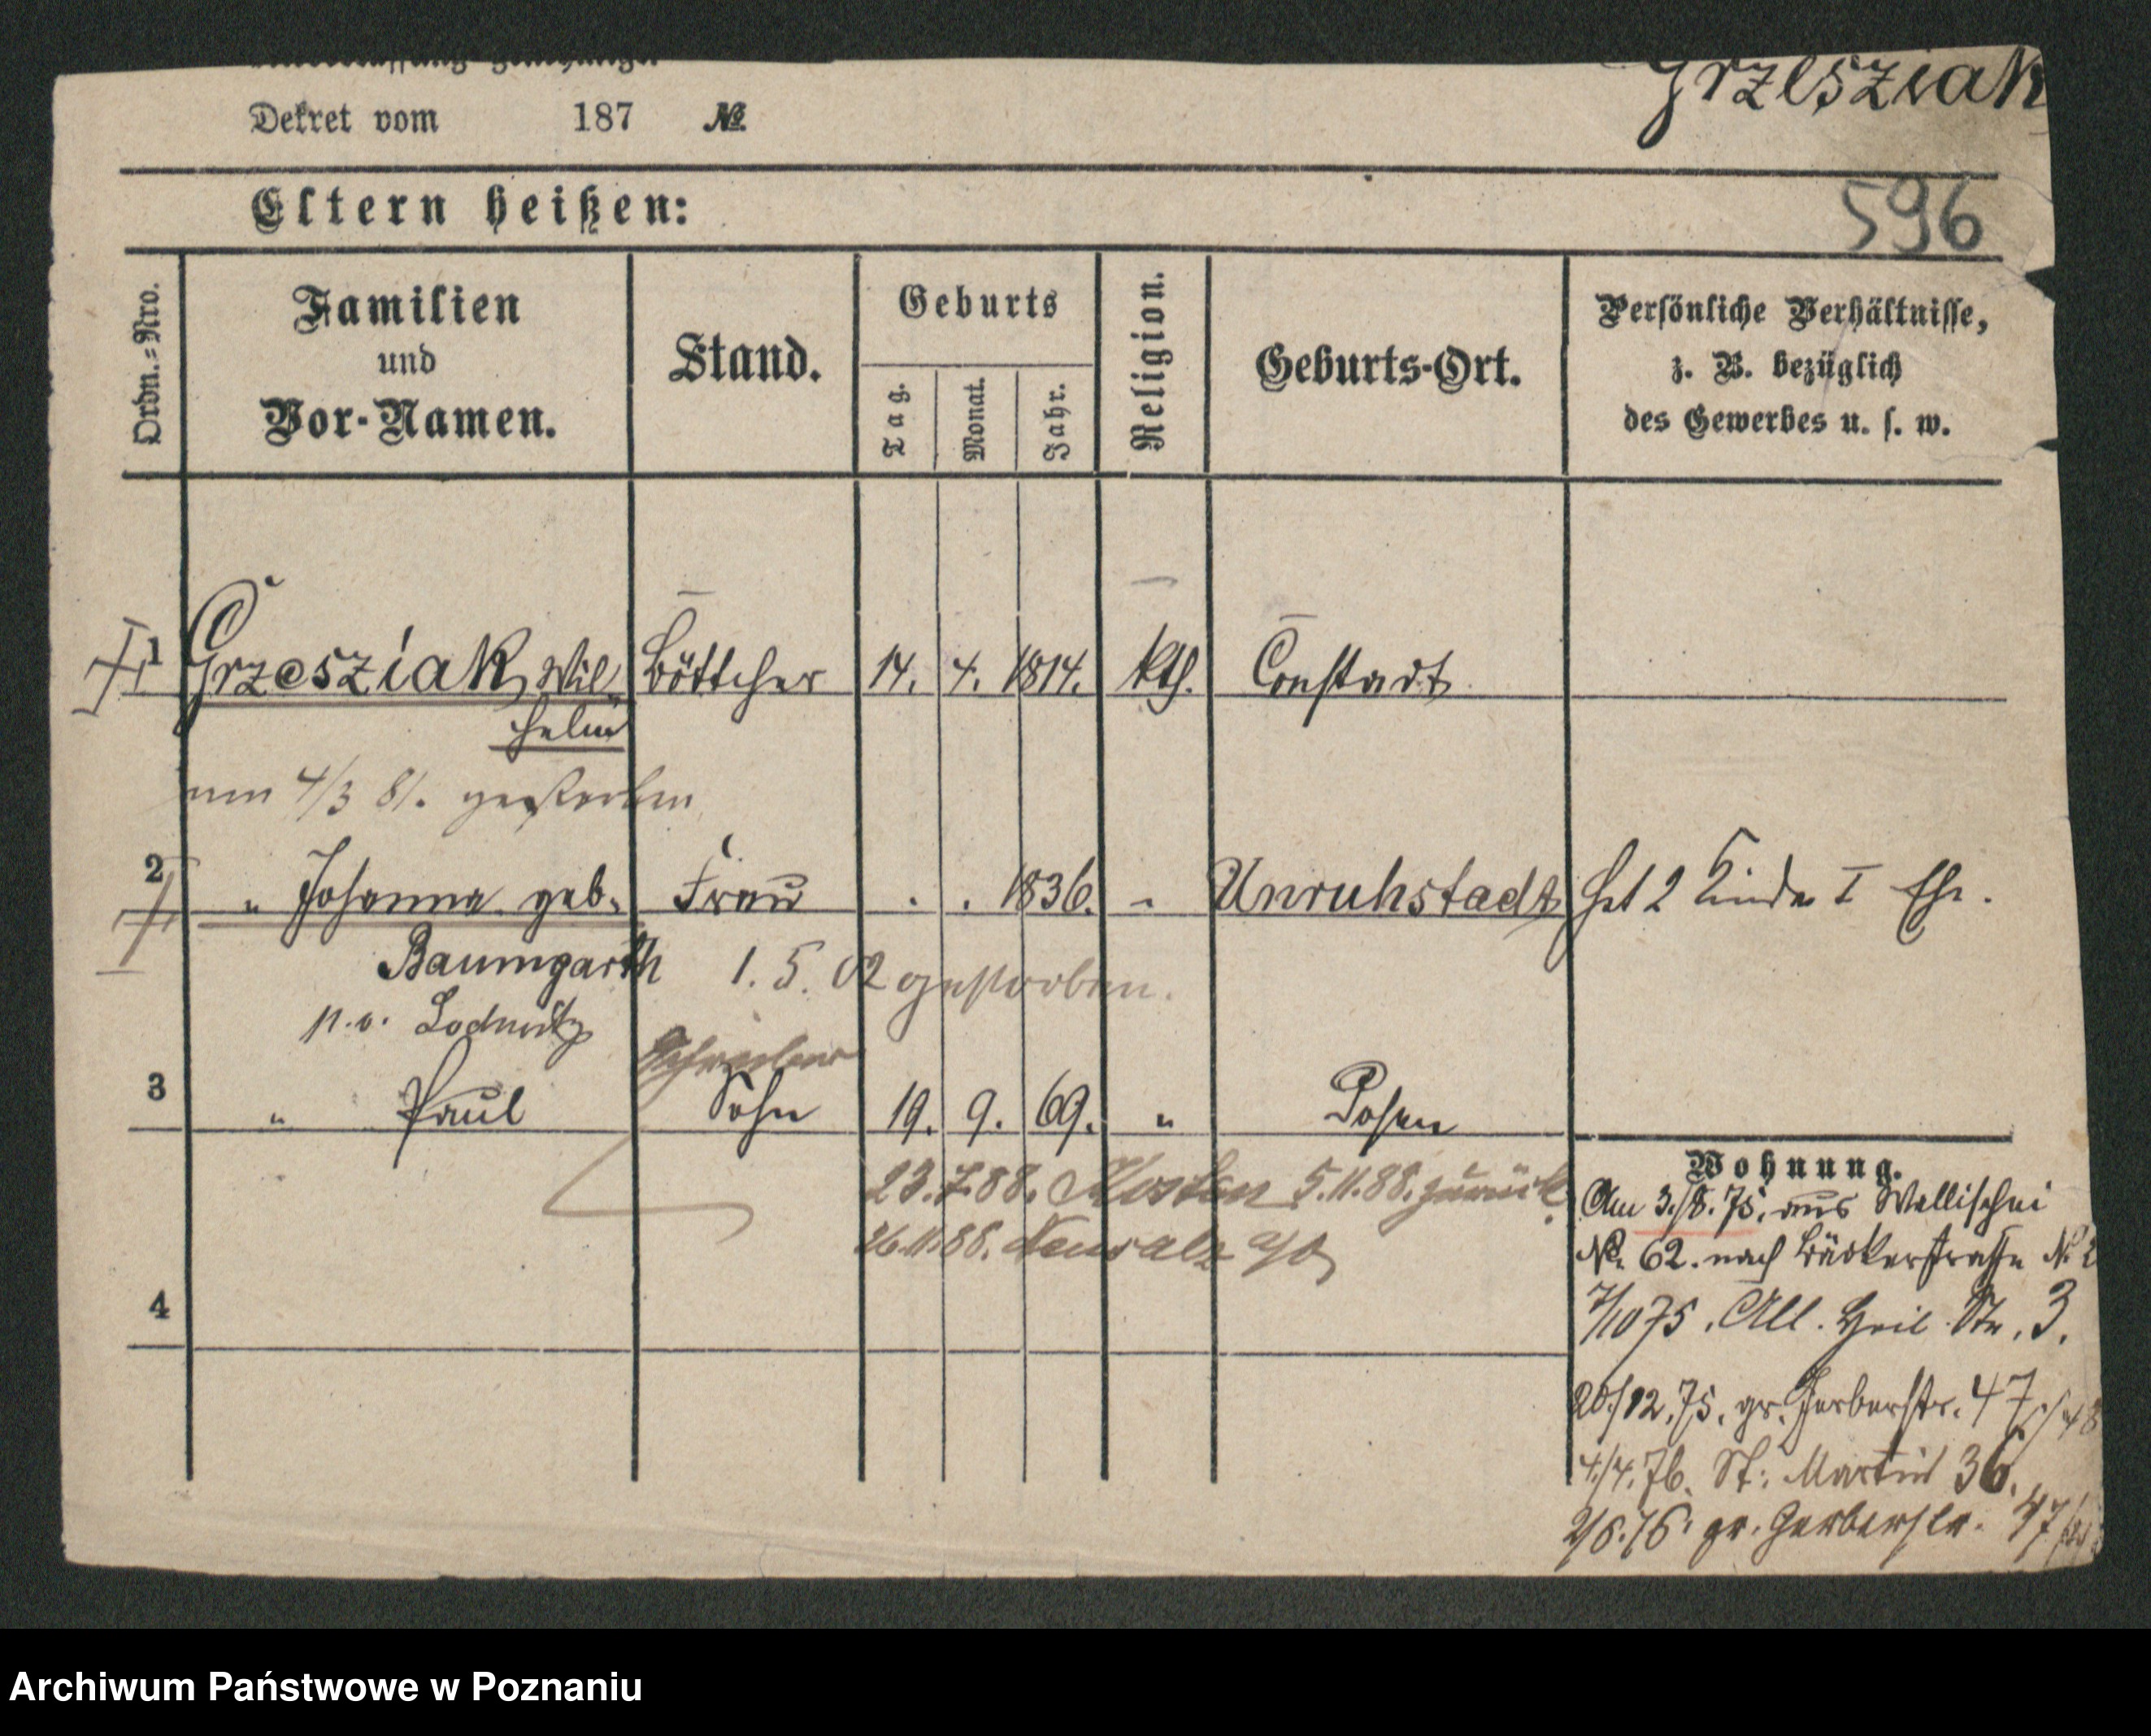 Dekret vom 187 №
Grzesziak
Eltern heißen:
596
Ordn.-Nro.
Familien
und
Vor-Namen.
Stand.
Geburts
Tag.
Monat.
Jahr.
Religion.
Geburts-Ort.
Persönliche Verhältnisse,
z. B. bezüglich
des Gewerbes u. s. w.
1 Grzesziak, Wil- Böttcher 14. 4. 1814. kth. Constadt
helm
am 4/3 81. gestorben
2 " Johanna geb. Frau . . 1836. " Unruhstadt hat 2 Kinder I Ehe.
Baumgarth 1. 5. 02 gestorben.
Schreiber
3 " Paul Sohn 19. 9. 69. " Posen
23.7.88. Kosten 5.11.88. zurück.
26.11.88. Neusalz a/O
4
Wohnung.
Am 3./8. 75. aus Wallischei
No. 62. nach Bäckerstrasse N. 2
7/10 75. All. Heil. Str. 3.
20/12. 75. gr. Gerberstr. 47
4./4. 76. St. Martin 36.
2/6. 76. gr. Gerberstr. 47
Archiwum Państwowe w Poznaniu